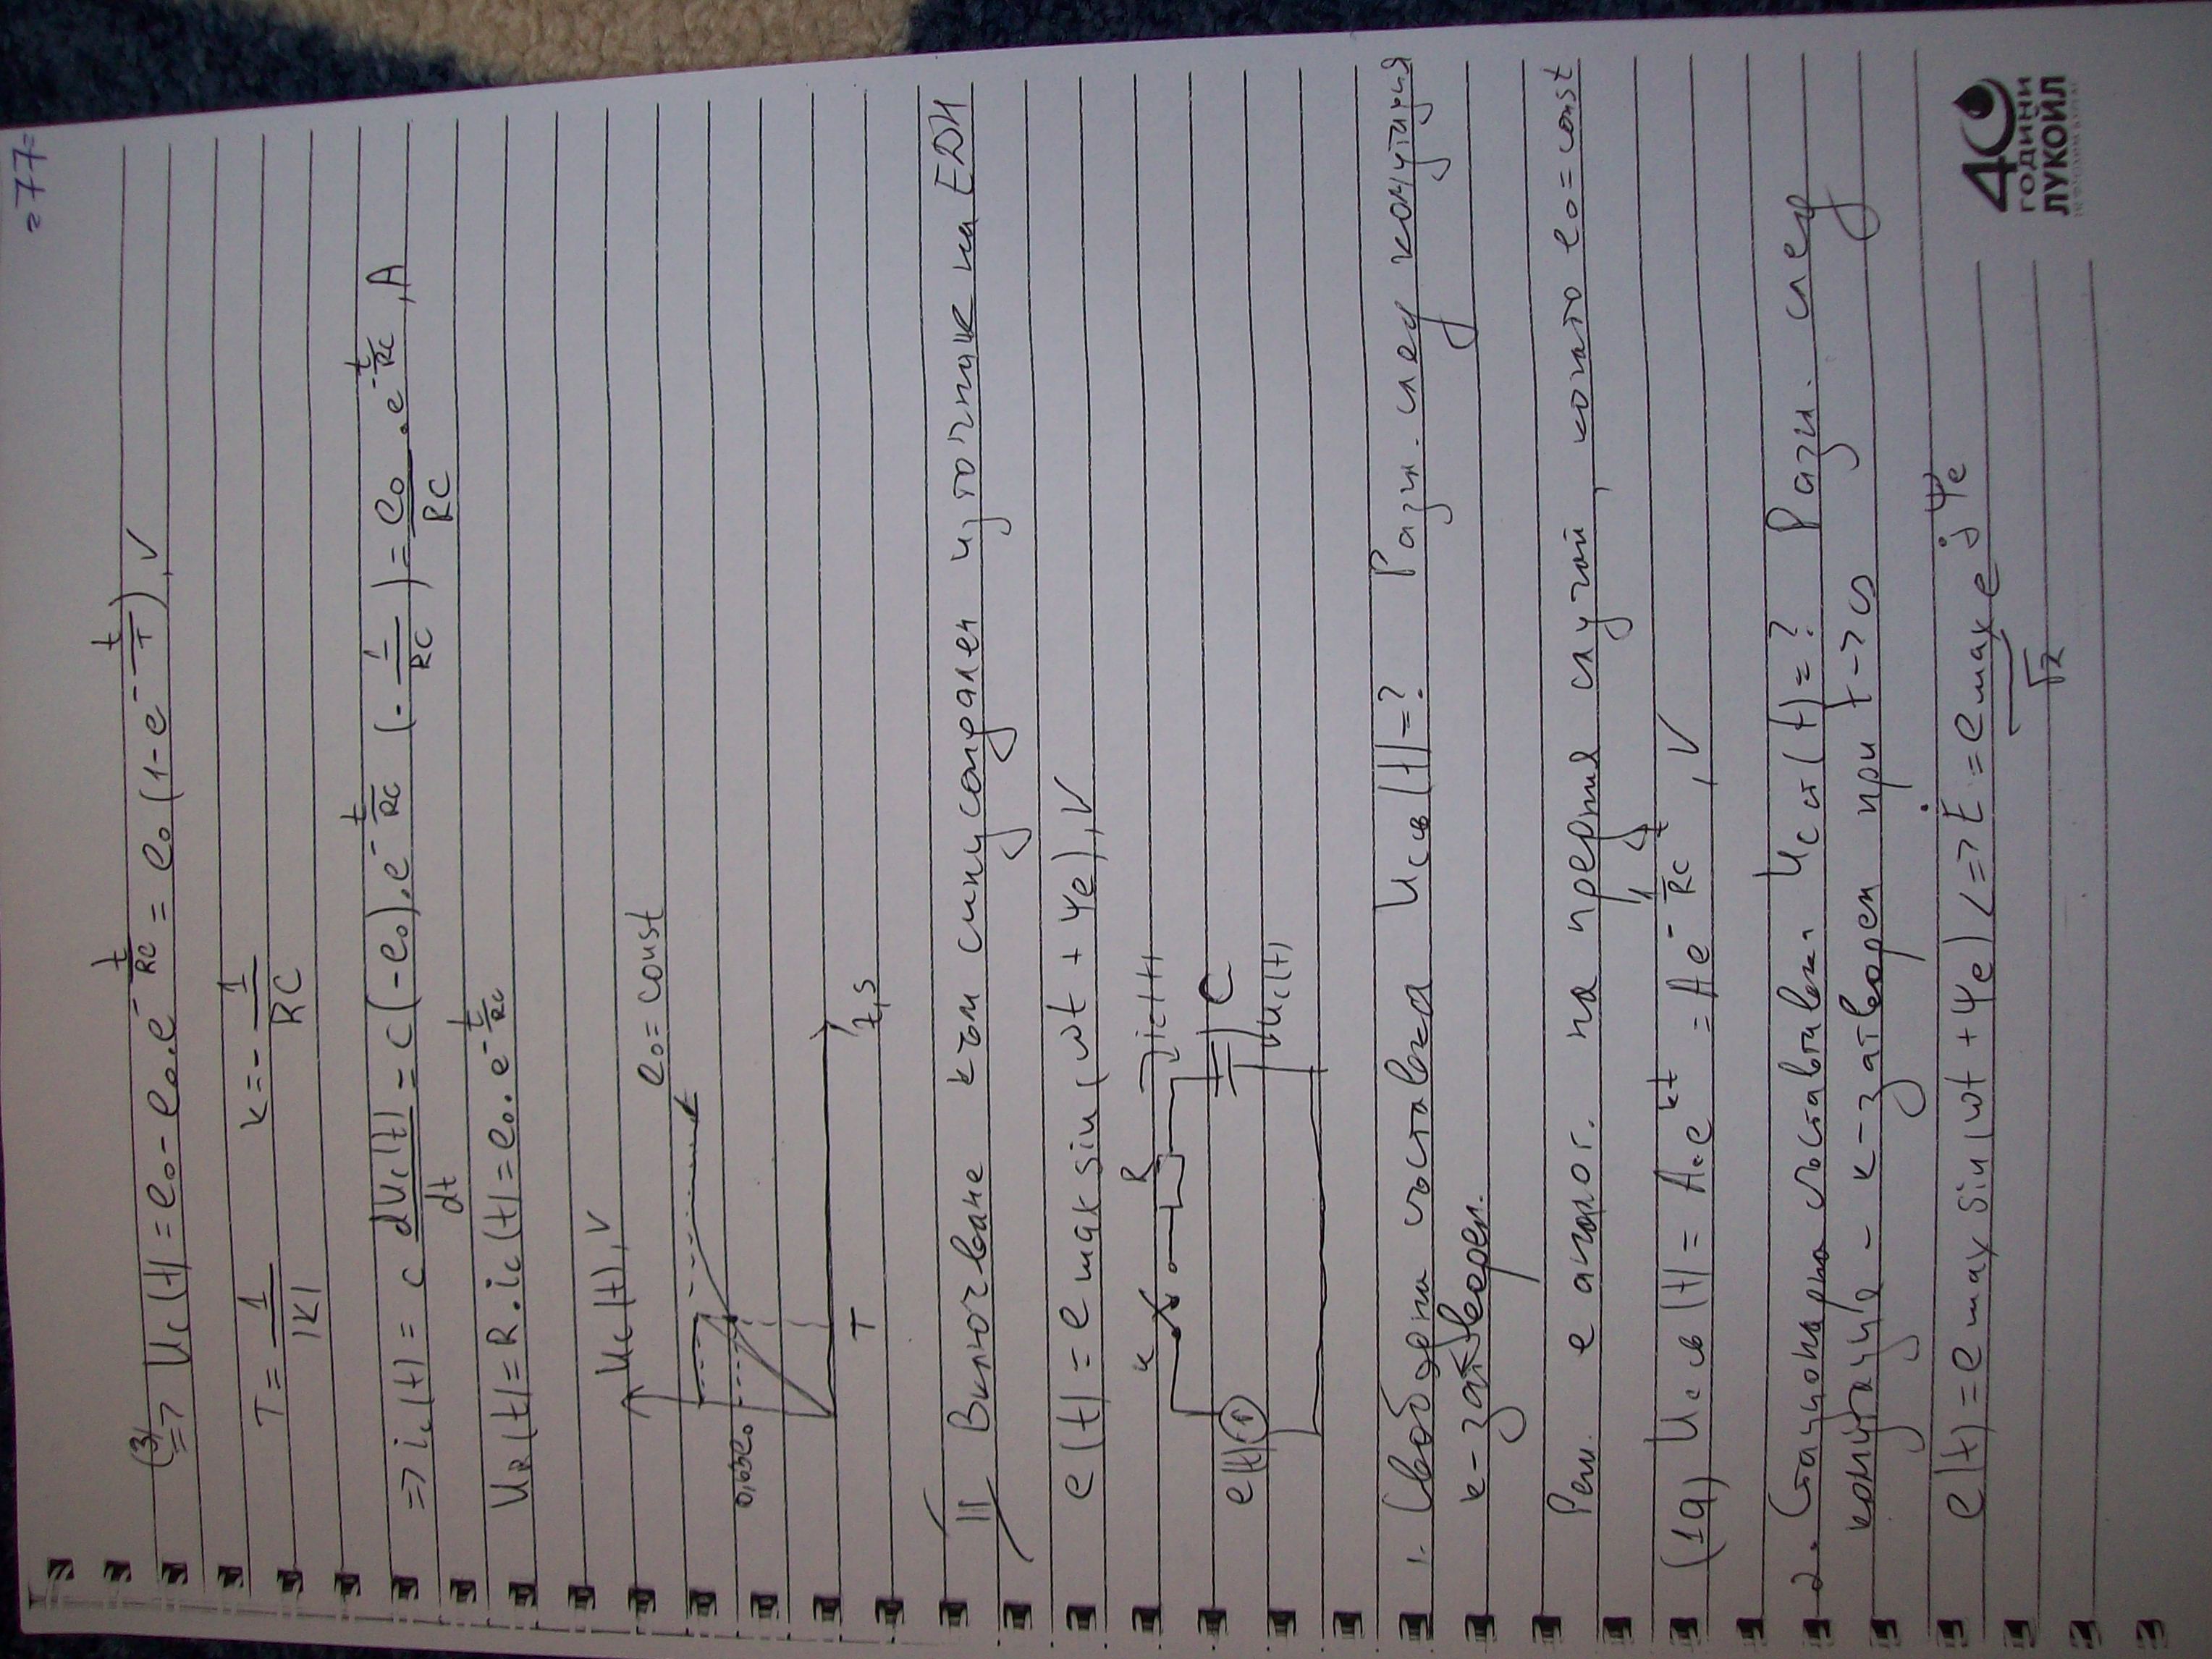 =77=
(3)
=> Uc(t) = e₀ - e₀.e^(-t/RC) = e₀(1-e^(-t/T)), V
T = 1/|K|   K = - 1/RC
=> ic(t) = c duc(t)/dt = c(-e₀).e^(-t/RC) (-1/RC) = e₀/RC . e^(-t/RC), A
UR(t) = R.ic(t) = e₀.e^(-t/RC)
Uc(t), V
e₀ = const
0,63e₀
T
t,s
II Включване към синусоидален източник на ЕДН
e(t) = e max sin(ωt + Ψe), V
к R ic(t)
e(t) C
Uc(t)
1. Свободна съставка Ucсв(t)=? Разгл. след комутация
к-затворен.
Реш. е аналог. на първия случай, когато e₀=const
(1а) Uc св(t) = A.e^(kt) = Ae^(-t/RC), V
2. Стационарна съставка Uc ст(t)=? Разгл. след
комутация - к-затворен при t->∞
e(t) = e max sin(ωt + Ψe) <=> Ė = e max/√2 e^(jΨe)
40
ГОДИНИ
ЛУКОЙЛ